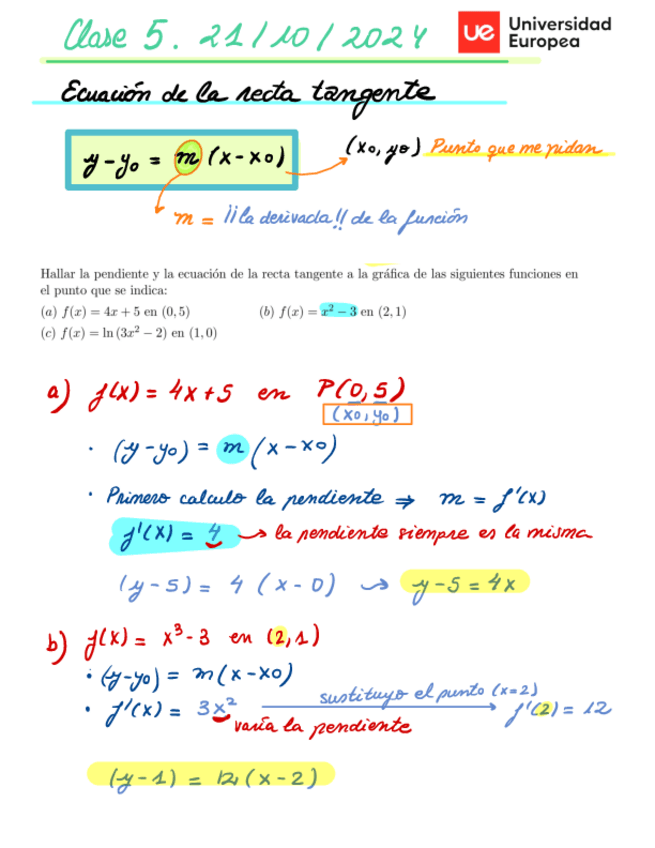 Clase 5. 21/10/2024
ue Universidad Europea
Ecuación de la recta tangente
y-y₀ = m (x-x₀)
(x₀, y₀) Punto que me pidan
m = ¡¡la derivada!! de la función
Hallar la pendiente y la ecuación de la recta tangente a la gráfica de las siguientes funciones en
el punto que se indica:
(a) f(x) = 4x + 5 en (0, 5) (b) f(x) = x² − 3 en (2, 1)
(c) f(x) = ln (3x² − 2) en (1, 0)
a) f(x) = 4x+5 en P(0,5)
(x₀, y₀)
· (y-y₀) = m (x-x₀)
· Primero calculo la pendiente ⇒ m = f'(x)
f'(x) = 4 → la pendiente siempre es la misma
(y-5) = 4 (x-0) → y-5 = 4x
b) f(x) = x³-3 en (2,1)
· (y-y₀) = m(x-x₀)
· f'(x) = 3x² sustituyo el punto (x=2) f'(2) = 12
varía la pendiente
(y-1) = 12 (x-2)